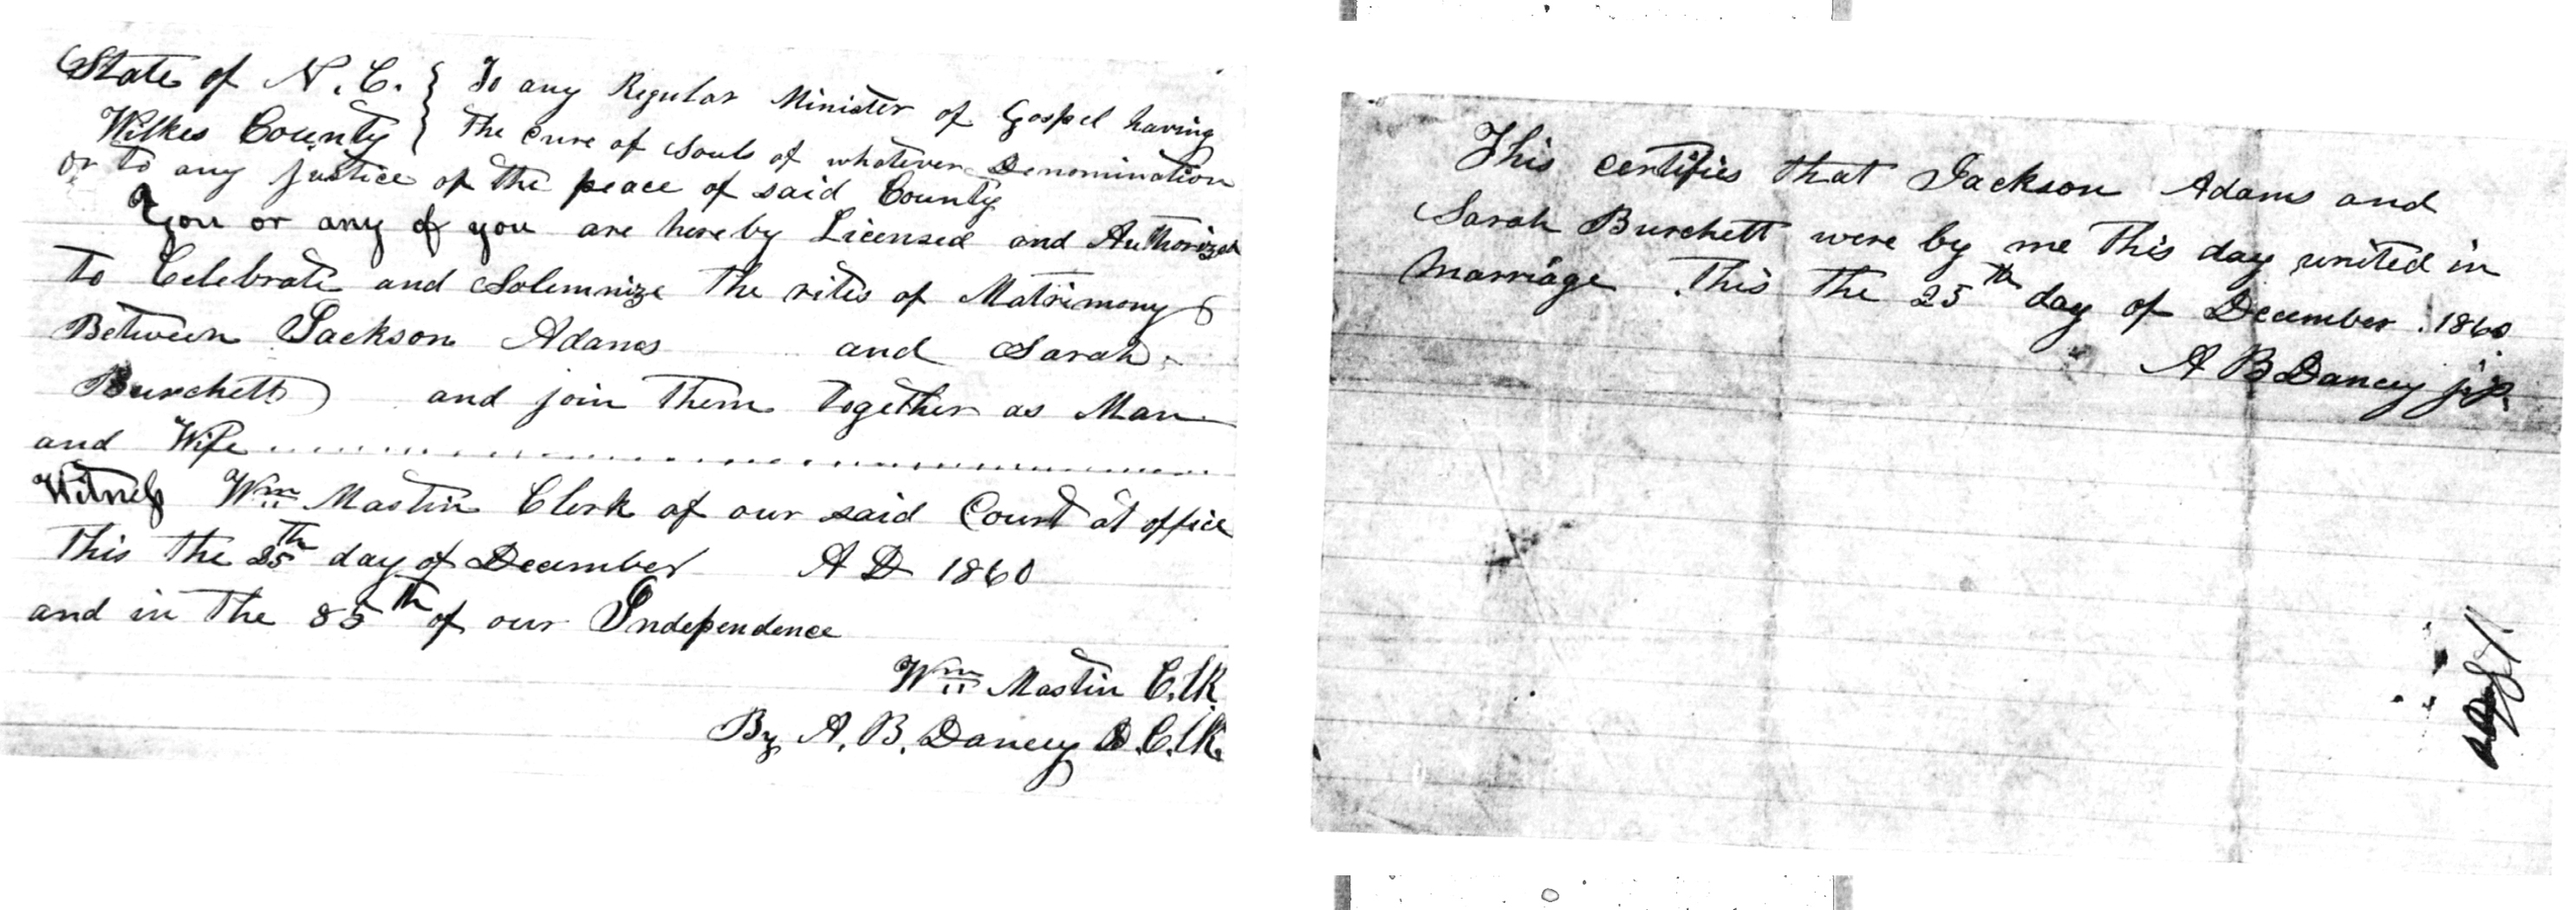 State of N. C. } To any Regular Minister of Gospel having
Wilkes County } The Cure of Souls of whatever Denomination
or to any justice of the peace of said County
You or any of you are hereby Licensed and Authorized
to Celebrate and Solemnize the rites of Matrimony
Between Jackson Adams and Sarah
Burchett and join them together as Man
and Wife
Witness Wm Mastin Clerk of our said Court at office
This the 25th day of December A D 1860
and in the 85th of our Independence
Wm Mastin C.lk
By A. B. Dancy D.C.lk.
This certifies that Jackson Adams and
Sarah Burchett were by me this day united in
marriage. This the 25th day of December 1860
A B Dancy j.p.